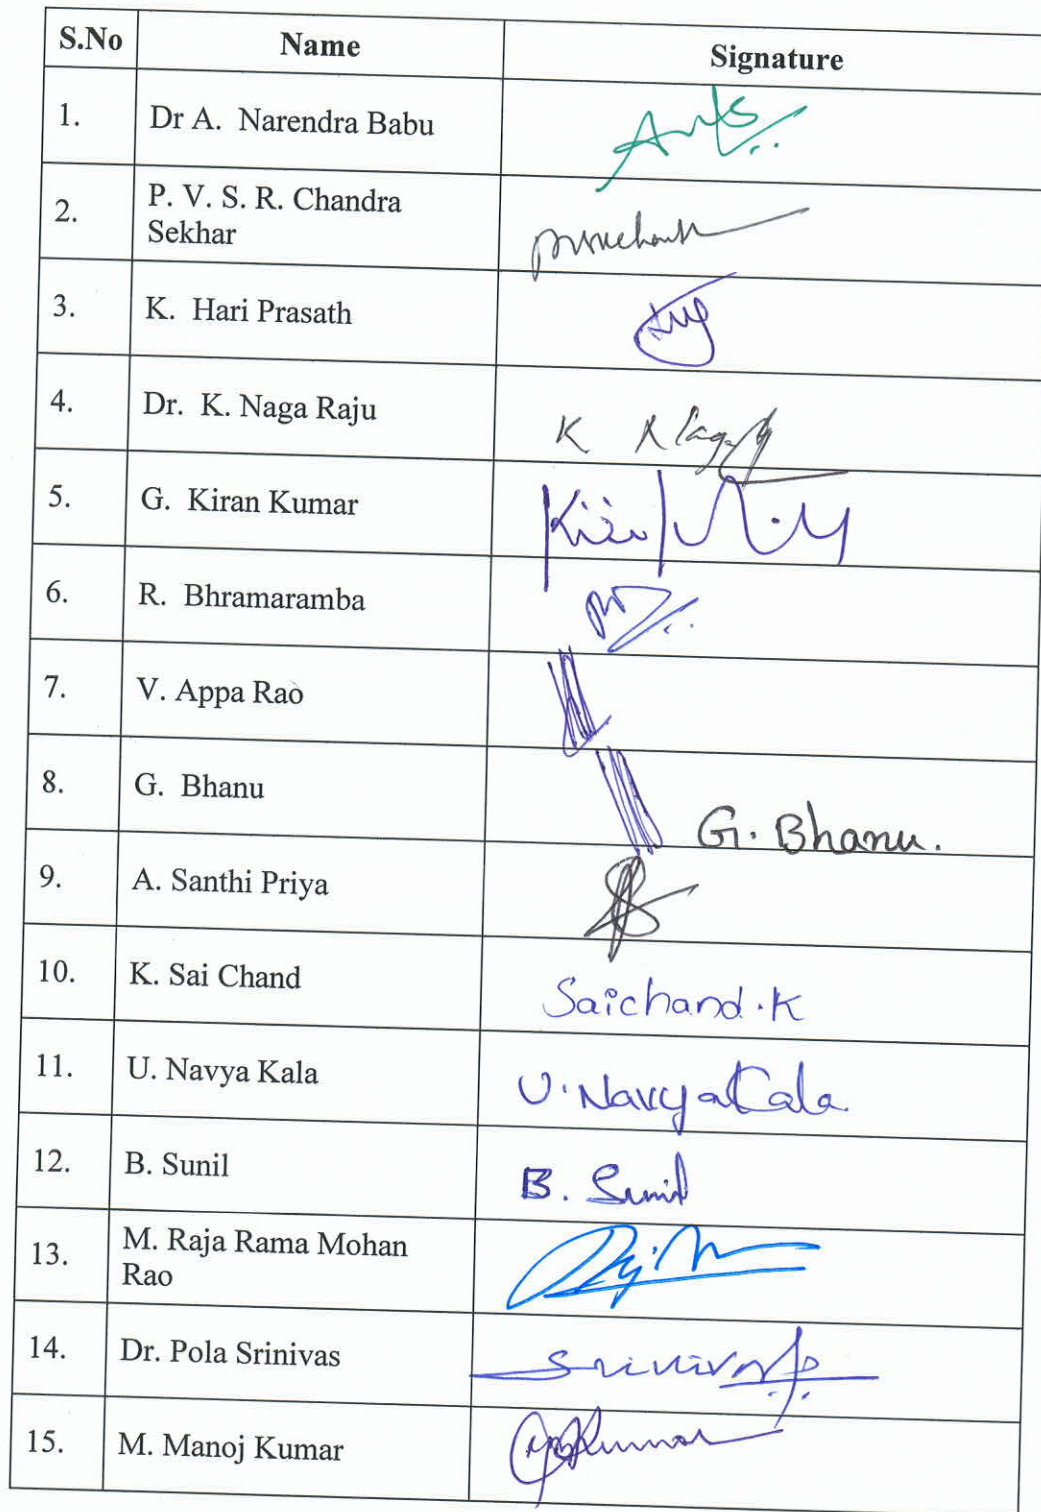 S.No Name Signature
1. Dr A. Narendra Babu
2. P. V. S. R. Chandra
Sekhar
3. K. Hari Prasath
4. Dr. K. Naga Raju K
5. G. Kiran Kumar
6. R. Bhramaramba
7. V. Appa Rao
8. G. Bhanu G. Bhanu.
9. A. Santhi Priya
10. K. Sai Chand Saichand.K
11. U. Navya Kala U. Navya Kala
12. B. Sunil B. Sunil
13. M. Raja Rama Mohan
Rao
14. Dr. Pola Srinivas
15. M. Manoj Kumar